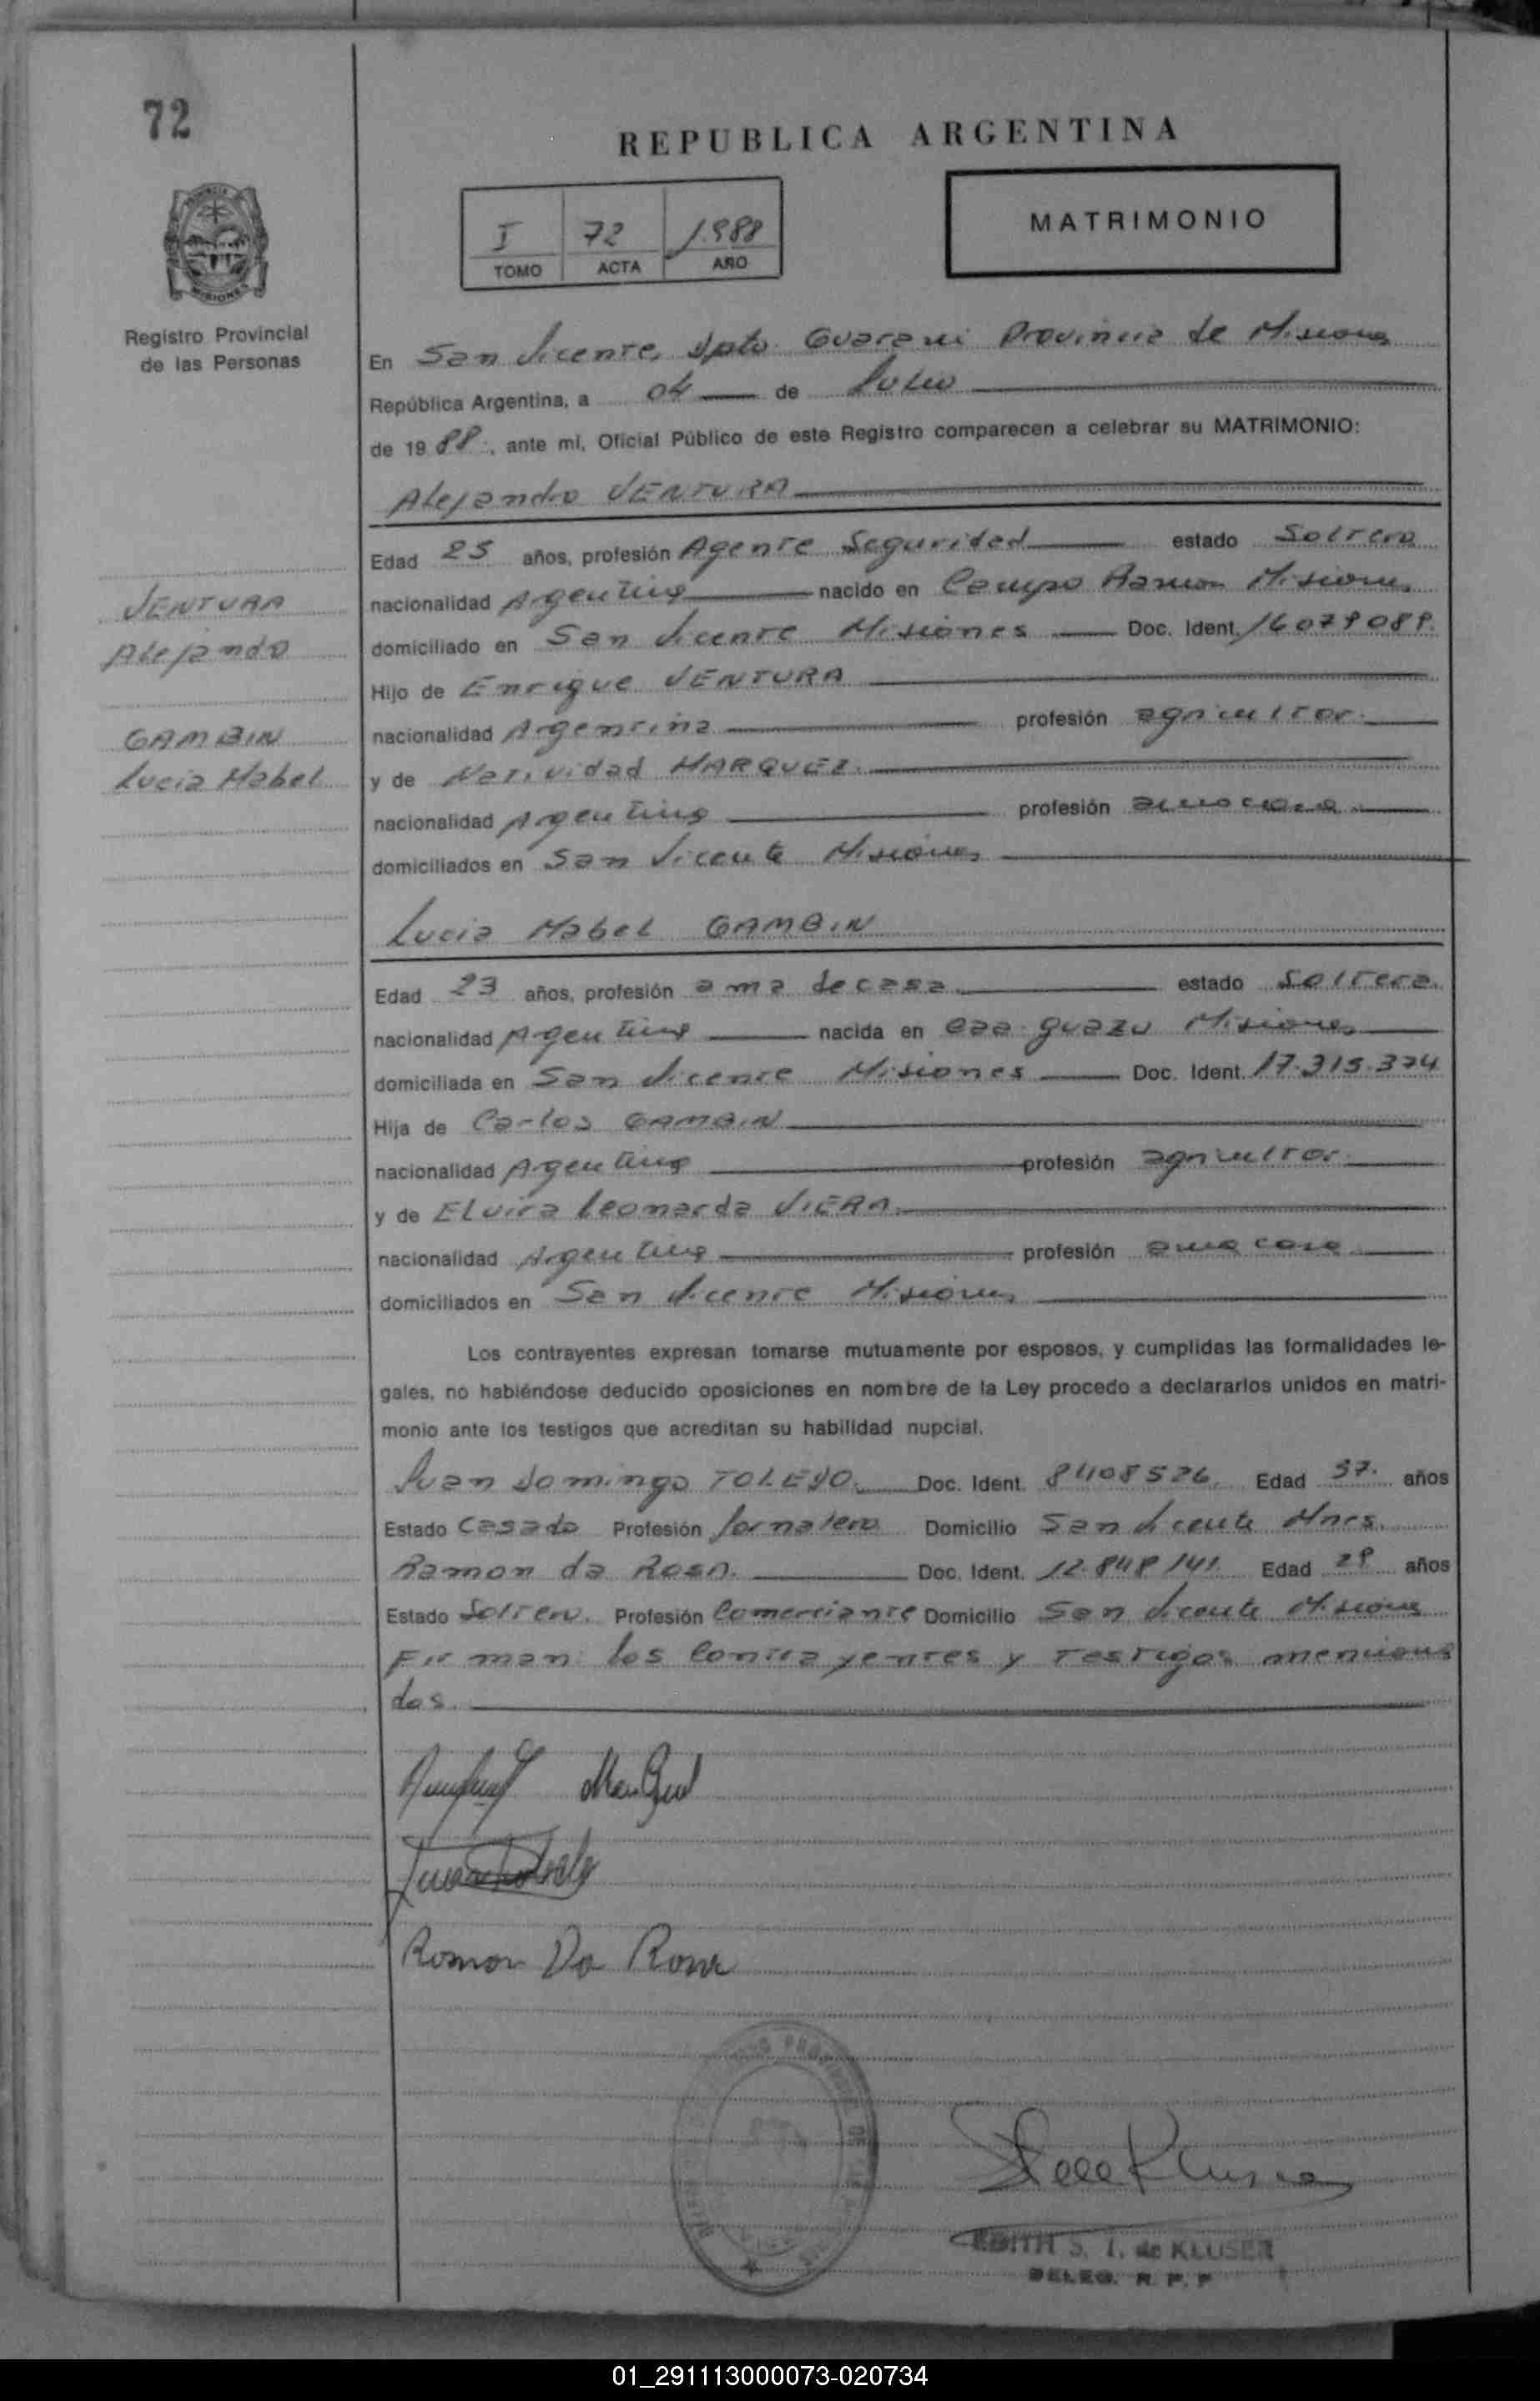 72
REPUBLICA ARGENTINA
I 72 1.988
TOMO ACTA AÑO
MATRIMONIO
MISIONES
Registro Provincial
de las Personas
En San Vicente, Dpto. Guarani Provincia de Misiones
República Argentina, a 04 de Julio
de 1988, ante mí, Oficial Público de este Registro comparecen a celebrar su MATRIMONIO:
Alejandro VENTURA
Edad 25 años, profesión Agente Seguridad estado Soltero
VENTURA
Alejando
GAMBIN
Lucia Mabel
nacionalidad Argentina nacido en Campo Ramon Misiones
domiciliado en San Vicente Misiones Doc. Ident.
Hijo de Enrique VENTURA
nacionalidad Argentina profesión agricultor
y de Natividad MARQUEZ
nacionalidad Argentina profesión
domiciliados en San Vicente Misiones
Lucia Mabel GAMBIN
Edad 23 años, profesión ama de casa estado Soltera.
nacionalidad Argentina nacida en Caa-guazu Misiones
domiciliada en San Vicente Misiones Doc. Ident. 17.315.374
Hija de Carlos GAMBIN
nacionalidad Argentina profesión agricultor
y de Elvira Leonarda VIERA
nacionalidad Argentina profesión ama casa
domiciliados en San Vicente Misiones
Los contrayentes expresan tomarse mutuamente por esposos, y cumplidas las formalidades le-
gales, no habiéndose deducido oposiciones en nombre de la Ley procedo a declararlos unidos en matri-
monio ante los testigos que acreditan su habilidad nupcial.
Juan Domingo TOLEDO Doc. Ident. 8408526 Edad 37. años
Estado Casado Profesión Jornalero Domicilio San Vicente Mnes.
Ramon da ROSA. Doc. Ident. 12.848.141 Edad años
Estado Soltero. Profesión Comerciante Domicilio San Vicente Misiones
Firman: los Contrayentes y Testigos menciona
dos.
Ramon Da Rosa
EDITH S. I. de KLUSER
DELEG. R. P. P
01_291113000073-020734